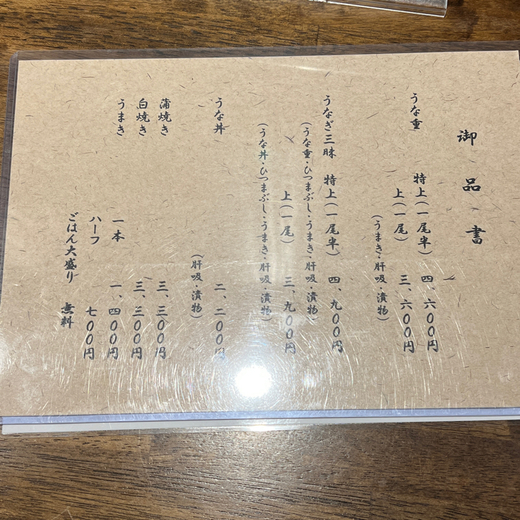 御品書
うな重 特上(一尾半) 四、六00円
上(一尾) 三、六00円
(うまき・肝吸・漬物)
うなぎ三昧 特上(一尾半) 四、九00円
(うな重・ひつまぶし・うまき・肝吸・漬物)
上(一尾) 三、九00円
(うな丼・ひつまぶし・うまき・肝吸・漬物)
うな丼 二、二00円
(肝吸・漬物)
蒲焼き 三、三00円
白焼き 三、三00円
うまき 一本 一、四00円
ハーフ 七00円
ごはん大盛り 無料